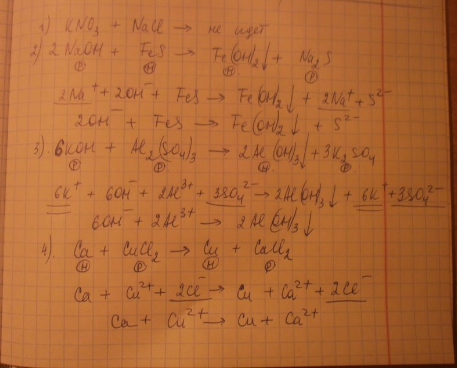 1) KNO₃ + NaCl → не идет
2) 2NaOH + FeS → Fe(OH)₂↓ + Na₂S
Р Н Н Р
2Na⁺ + 2OH⁻ + FeS → Fe(OH)₂↓ + 2Na⁺ + S²⁻
2OH⁻ + FeS → Fe(OH)₂↓ + S²⁻
3) 6KOH + Al₂(SO₄)₃ → 2Al(OH)₃↓ + 3K₂SO₄
Р Р Н Р
6K⁺ + 6OH⁻ + 2Al³⁺ + 3SO₄²⁻ → 2Al(OH)₃↓ + 6K⁺ + 3SO₄²⁻
6OH⁻ + 2Al³⁺ → 2Al(OH)₃↓
4) Ca + CuCl₂ → Cu + CaCl₂
Н Р Н Р
Ca + Cu²⁺ + 2Cl⁻ → Cu + Ca²⁺ + 2Cl⁻
Ca + Cu²⁺ → Cu + Ca²⁺